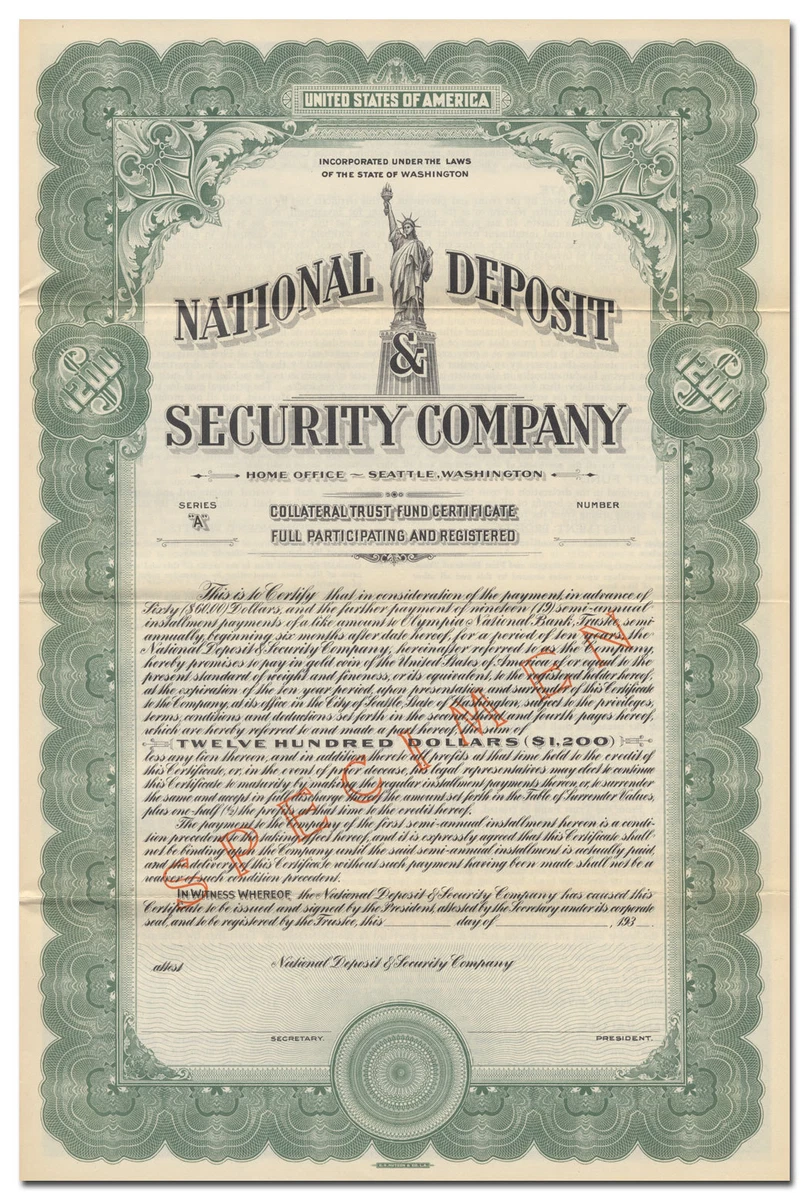 UNITED STATES OF AMERICA
INCORPORATED UNDER THE LAWS
OF THE STATE OF WASHINGTON
NATIONAL DEPOSIT
&
SECURITY COMPANY
$1200
$1200
HOME OFFICE ~ SEATTLE, WASHINGTON
SERIES
"A"
COLLATERAL TRUST FUND CERTIFICATE
FULL PARTICIPATING AND REGISTERED
NUMBER
This is to Certify that in consideration of the payment, in advance of
Sixty ($60.00) Dollars, and the further payment of nineteen (19) semi-annual
installment payments of a like amount to Olympia National Bank, Trustee, semi-
annually, beginning six months after date hereof, for a period of ten years, the
National Deposit & Security Company, hereinafter referred to as the Company,
hereby promises to pay in gold coin of the United States of America of or equal to the
present standard of weight and fineness, or its equivalent, to the registered holder hereof,
at the expiration of the ten year period, upon presentation and surrender of this Certificate
to the Company, at its office in the City of Seattle, State of Washington, subject to the privileges,
terms, conditions and deductions set forth in the second, third and fourth pages hereof,
which are hereby referred to and made a part hereof, the sum of
TWELVE HUNDRED DOLLARS ($1,200)
less any lien thereon, and in addition thereto the profits at that time held to the credit of
this Certificate, or, in the event of prior decease, his legal representatives may elect to continue
this Certificate to maturity by making the regular installment payments thereon, or, to surrender
the same and accept in full discharge thereof the amount set forth in the Table of Surrender Values,
plus one-half (½) the profits at that time to the credit hereof.
The payment to the Company of the first semi-annual installment hereon is a condi-
tion precedent to the taking effect hereof, and it is expressly agreed that this Certificate shall
not be binding upon the Company until the said semi-annual installment is actually paid,
and the delivery of this Certificate without such payment having been made shall not be a
waiver of such condition precedent.
IN WITNESS WHEREOF, the National Deposit & Security Company has caused this
Certificate to be issued and signed by the President, attested by the Secretary under its corporate
seal, and to be registered by the Trustee, this day of , 193
SPECIMEN
attest National Deposit & Security Company
SECRETARY. PRESIDENT.